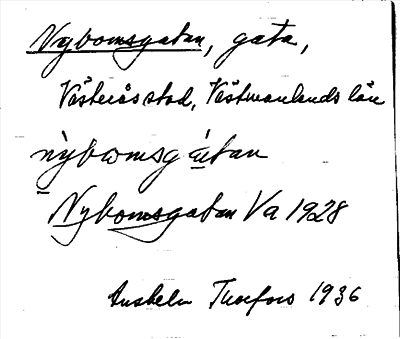 Nybomsgatan, gata,
Västerås stad, Västmanlands län
nỳbωmsgátan
Nybomsgatan Va 1928
1936